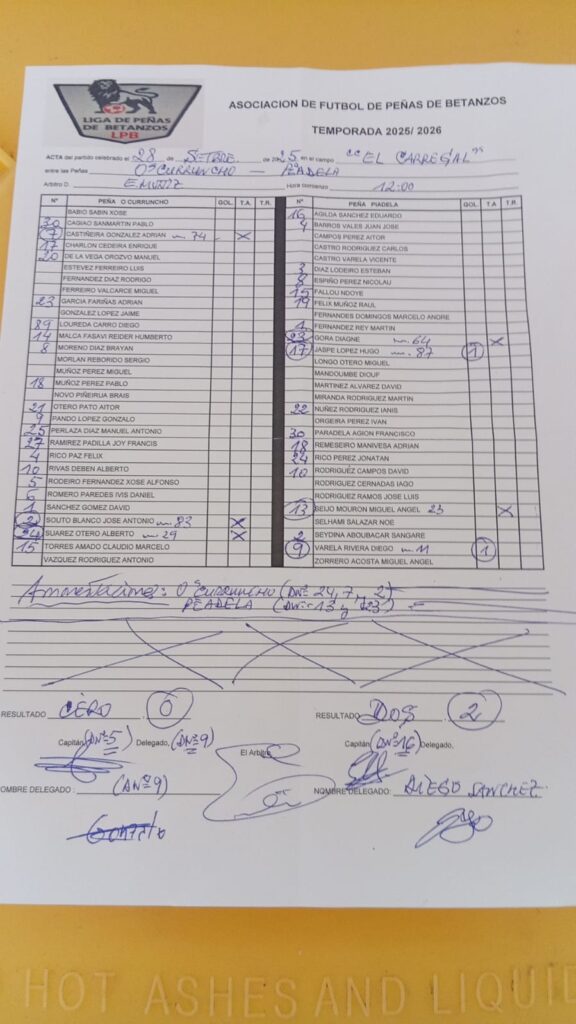 LIGA DE PEÑAS
DE BETANZOS
LPB
ASOCIACION DE FUTBOL DE PEÑAS DE BETANZOS
TEMPORADA 2025/ 2026
ACTA del partido celebrado el 28 de SETBRE. de 2025 en el campo "EL CARREGAL"
entre las Peñas Oº CURRUNCHO — PIADELA
Arbitro D. E. MUÑIZ Hora comienzo 12:00
Nº PEÑA O CURRUNCHO GOL. T.A. T.R.
BABIO SABIN XOSE
30 CAGIAO SANMARTIN PABLO
7 CASTIÑEIRA GONZALEZ ADRIAN m. 74 X
17 CHARLON CEDEIRA ENRIQUE
20 DE LA VEGA OROZVO MANUEL
ESTEVEZ FERREIRO LUIS
FERNANDEZ DIAZ RODRIGO
FERREIRO VALCARCE MIGUEL
23 GARCIA FARIÑAS ADRIAN
GONZALEZ LOPEZ JAIME
89 LOUREDA CARRO DIEGO
14 MALCA FASAVI REIDER HUMBERTO
8 MORENO DIAZ BRAYAN
MORLAN REBORIDO SERGIO
MUÑOZ PEREZ MIGUEL
18 MUÑOZ PEREZ PABLO
NOVO PIÑEIRUA BRAIS
21 OTERO PATO AITOR
9 PANDO LOPEZ GONZALO
25 PERLAZA DIAZ MANUEL ANTONIO
27 RAMIREZ PADILLA JOY FRANCIS
4 RICO PAZ FELIX
10 RIVAS DEBEN ALBERTO
5 RODEIRO FERNANDEZ XOSE ALFONSO
6 ROMERO PAREDES IVIS DANIEL
1 SANCHEZ GOMEZ DAVID
2 SOUTO BLANCO JOSE ANTONIO m. 83 X
24 SUAREZ OTERO ALBERTO m. 29 X
15 TORRES AMADO CLAUDIO MARCELO
VAZQUEZ RODRIGUEZ ANTONIO
Nº PEÑA PIADELA GOL. T.A T.R.
16 AGILDA SANCHEZ EDUARDO
4 BARROS VALES JUAN JOSE
CAMPOS PEREZ AITOR
CASTRO RODRIGUEZ CARLOS
CASTRO VARELA VICENTE
3 DIAZ LODEIRO ESTEBAN
8 ESPIÑO PEREZ NICOLAU
15 FALLOU NDOYE
19 FELIX MUÑOZ RAUL
FERNANDES DOMINGOS MARCELO ANDRE
1 FERNANDEZ REY MARTIN
23 GORA DIAGNE m. 64 X
17 JASPE LOPEZ HUGO m. 87 1
LONGO OTERO MIGUEL
MANDOUMBE DIOUF
MARTINEZ ALVAREZ DAVID
MIRANDA RODRIGUEZ MARTIN
22 NUÑEZ RODRIGUEZ IANIS
ORGEIRA PEREZ IVAN
30 PARADELA AGION FRANCISCO
18 REMESEIRO MANIVESA ADRIAN
24 RICO PEREZ JONATAN
10 RODRIGUEZ CAMPOS DAVID
RODRIGUEZ CERNADAS IAGO
RODRIGUEZ RAMOS JOSE LUIS
13 SEIJO MOURON MIGUEL ANGEL 23 X
SELHAMI SALAZAR NOE
2 SEYDINA ABOUBACAR SANGARE
9 VARELA RIVERA DIEGO m. 11 1
ZORRERO ACOSTA MIGUEL ANGEL
Amonestaciones: Oº CURRUNCHO (DNº 24, 7, 2)
PIADELA (DNº 13 y 23)
RESULTADO CERO 0
RESULTADO DOS 2
Capitán (DNº 5) Delegado, (DNº 9)
El Arbitro
Capitán (DNº 16) Delegado,
NOMBRE DELEGADO : (DNº 9)
NOMBRE DELEGADO: DIEGO SANCHEZ